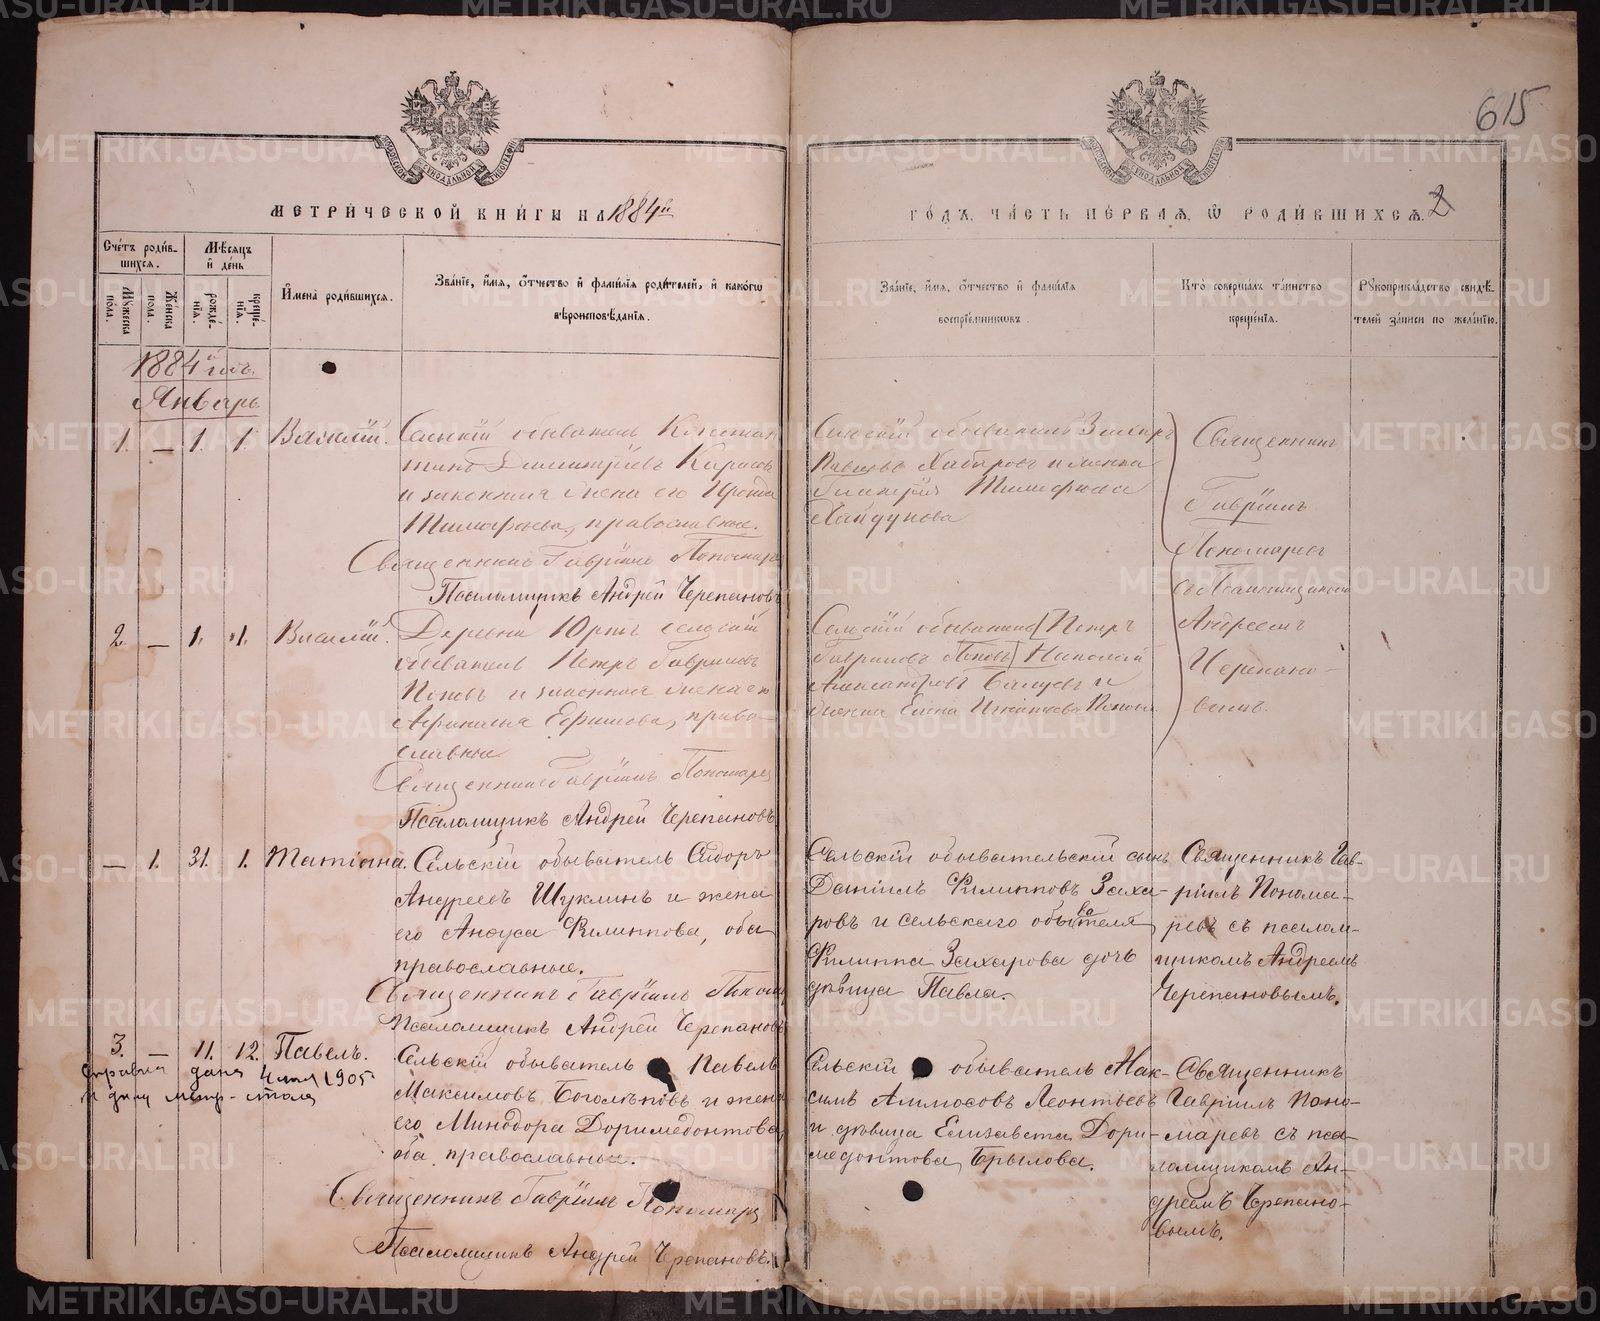 615
МЕТРИ́ЧЕСКОЙ КНИ́ГИ НА 1884й
ГО́ДЪ, ЧА́СТЬ ПЕ́РВАЯ, Ѽ РОДИ́ВШИХСЯ. 2
Сче́тъ роди́вшихся.
Мꙋжеска по́ла.
Же́нска по́ла.
Мѣ́сяцъ и́ де́нь
рожде́нїя.
креще́нїя.
И҆мена̀ роди́вшихся.
Зва́нїе, и҆́мя, ѻ҆́тчество и҆ фами́лїя роди́телей, и҆ како́гѡ вѣроисповѣ́данїя.
Зва́нїе, и҆́мя, ѻ҆́тчество и҆ фами́лїя воспрїе́мникѡвъ.
Кто̀ соверша́лъ та́инство креще́нїя.
Рꙋкоприкла́дство свидѣ́телей за́писи по жела́нїю.
1884й годъ.
Январь
1. — 1. 1. Василій.
Сельскій обыватель Констан
тинъ Димитріевъ Карасовъ
и законная жена его Ираида
Тимофеева, православные.
Священникъ Гавріилъ Пономарев
Псаломщикъ Андрей Черепановъ
Сельскій обыватель Захаръ
Павловъ Хабаровъ и жена
Тимофеева
Хайдукова
Священникъ
Гавріилъ
Пономаревъ
съ Псаломщикомъ
Андреемъ
Черепано-
вымъ.
2. — 1. 1. Василій.
Деревни Юртъ сельскій
обыватель Петръ Гавриловъ
Поповъ и законная жена его
Афанасья Ефимова, право-
славные
Священникъ Гавріилъ Пономарев
Псаломщикъ Андрей Черепановъ
Сельскій обыватель Петръ
Гавриловъ Поповъ Николай
Александровъ и
Елена Игнатьева Попова
— 1. 31. 1. Татіана.
Сельскій обыватель Сидоръ
Андреевъ Шуклинъ и жена
его Анфуса Филиппова, оба
православные.
Священникъ Гавріилъ Поном
Псаломщикъ Андрей Черепановъ
Сельскій обывательскій сынъ
Даніилъ Филипповъ Заха-
ровъ и сельскаго обывателя
Филиппа Захарова дочь
дѣвица Павла.
Священникъ Гав-
ріилъ Понома-
ревъ съ псалом-
щикомъ Андреемъ
Черепановымъ.
3. — 11. 12. Павелъ.
Справка дана 4 1905
Сельскій обыватель Павелъ
Максимовъ Боголѣповъ и жена
его Минодора Доримедонтова,
оба православные.
Священникъ Гавріилъ Пономарев
Псаломщикъ Андрей Черепановъ.
Сельскій обыватель Мак-
симъ Аммосовъ Леонтьевъ
и дѣвица Елизавета Дори-
медонтова Брылова.
Священникъ
Гавріилъ Поно-
маревъ съ пса-
ломщикомъ Ан-
дреемъ Черепано-
вымъ.
METRIKI.GASO-URAL.RU